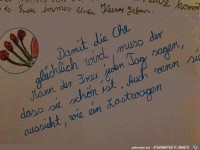 immer einen
Damit die Ehe
glücklich wird muss der
Mann der Frau jeden Tag sagen,
dass sie schön ist. Auch wenn sie
aussieht, wie ein Lastwagen